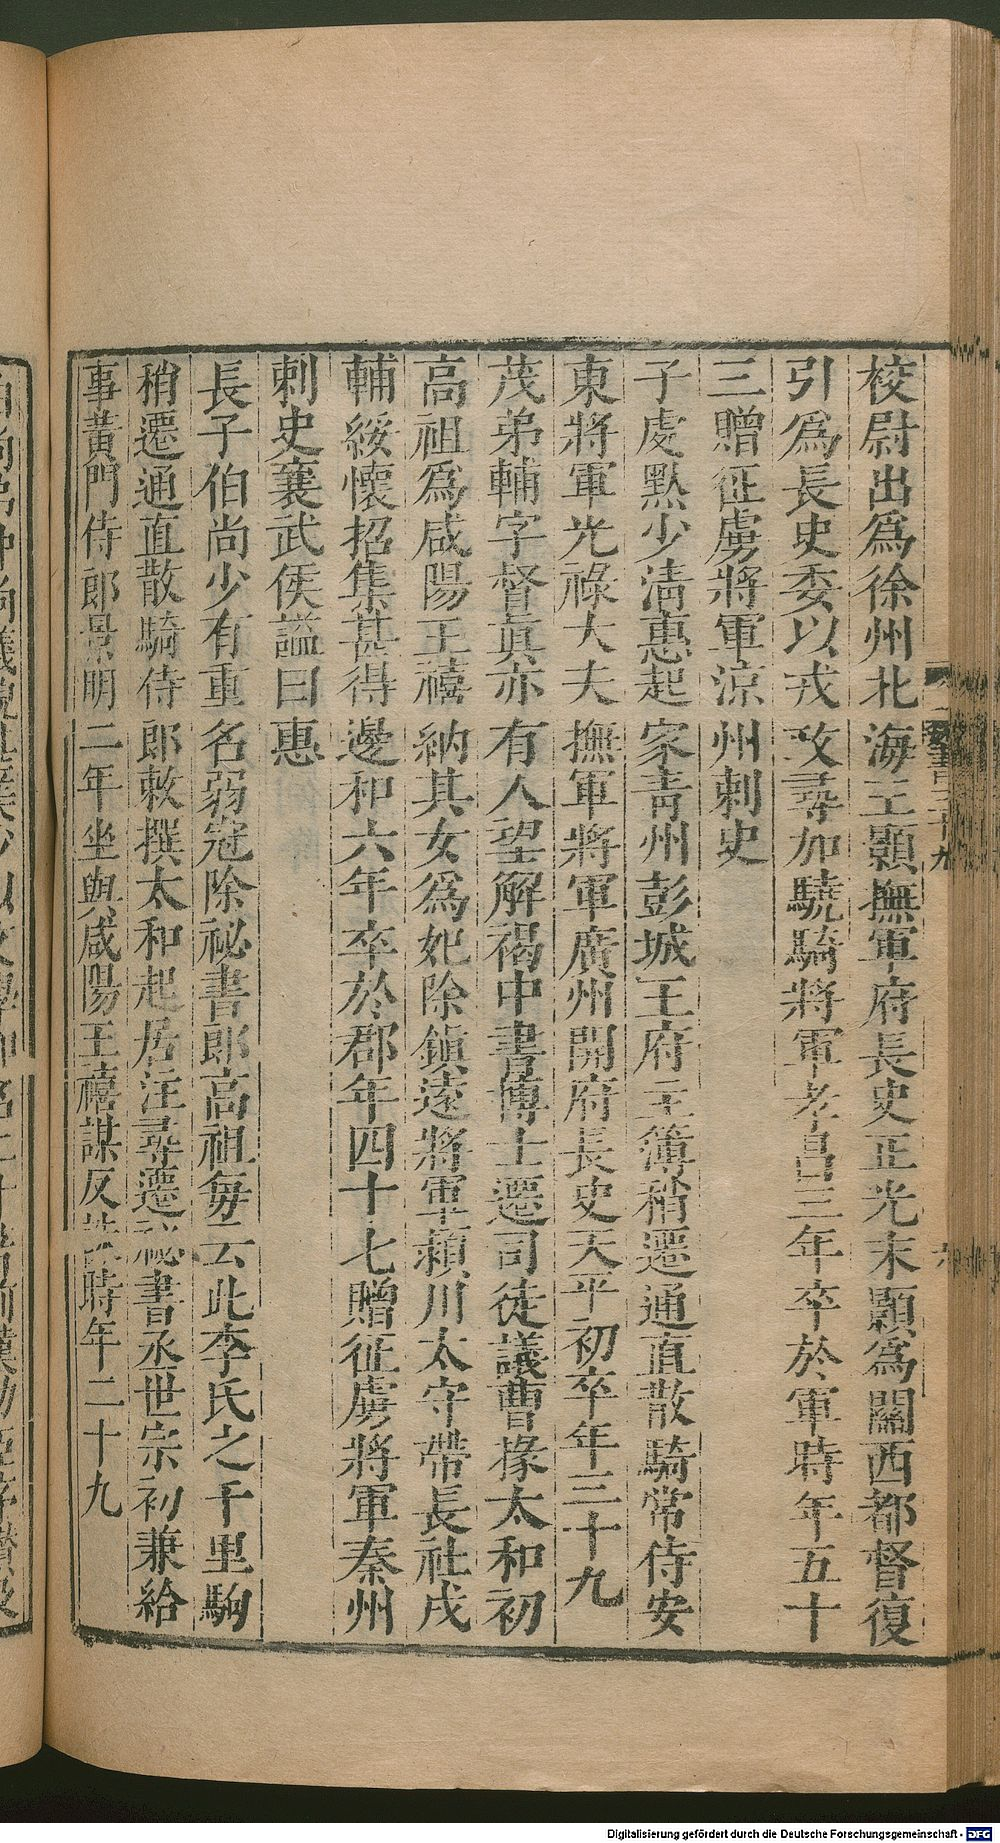 校尉出爲徐州北海王顥撫軍府長史正光末顥爲關西都督復
引爲長史委以戎政尋加驍騎將軍孝昌三年卒於軍時年五十
三贈征虜將軍涼州刺史
子處默少淸惠起家靑州彭城王府主簿稍遷通直散騎常侍安
東將軍光祿大夫撫軍將軍廣州開府長史天平初卒年三十九
茂弟輔字督眞亦有人望解褐中書博士遷司徒議曹掾太和初
高祖爲咸陽王禧納其女爲妃除鎭遠將軍潁川太守帶長社戍
輔綏懷招集甚得邊和六年卒於郡年四十七贈征虜將軍秦州
刺史襄武侯謚曰惠
長子伯尚少有重名弱冠除祕書郎高祖每云此李氏之千里駒
稍遷通直散騎侍郎敕撰太和起居注尋遷祕書丞世宗初兼給
事黃門侍郎景明二年坐與咸陽王禧謀反誅時年二十九
Digitalisierung gefördert durch die Deutsche Forschungsgemeinschaft - DFG